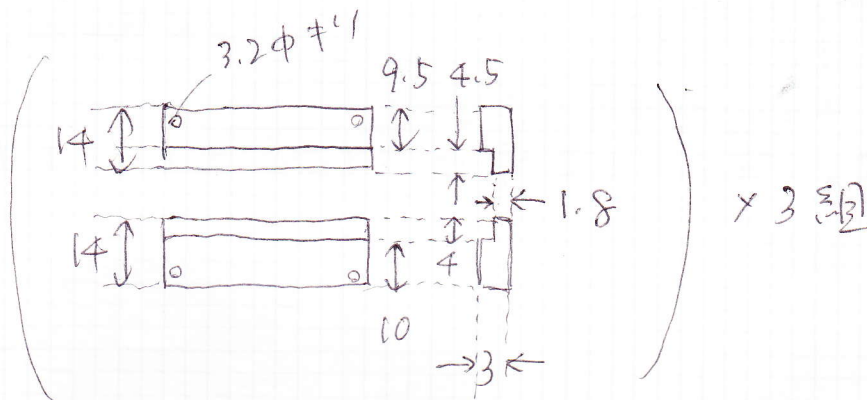 3.2φキリ
9.5 4.5
14
1.8
×3組
14
4
10
3